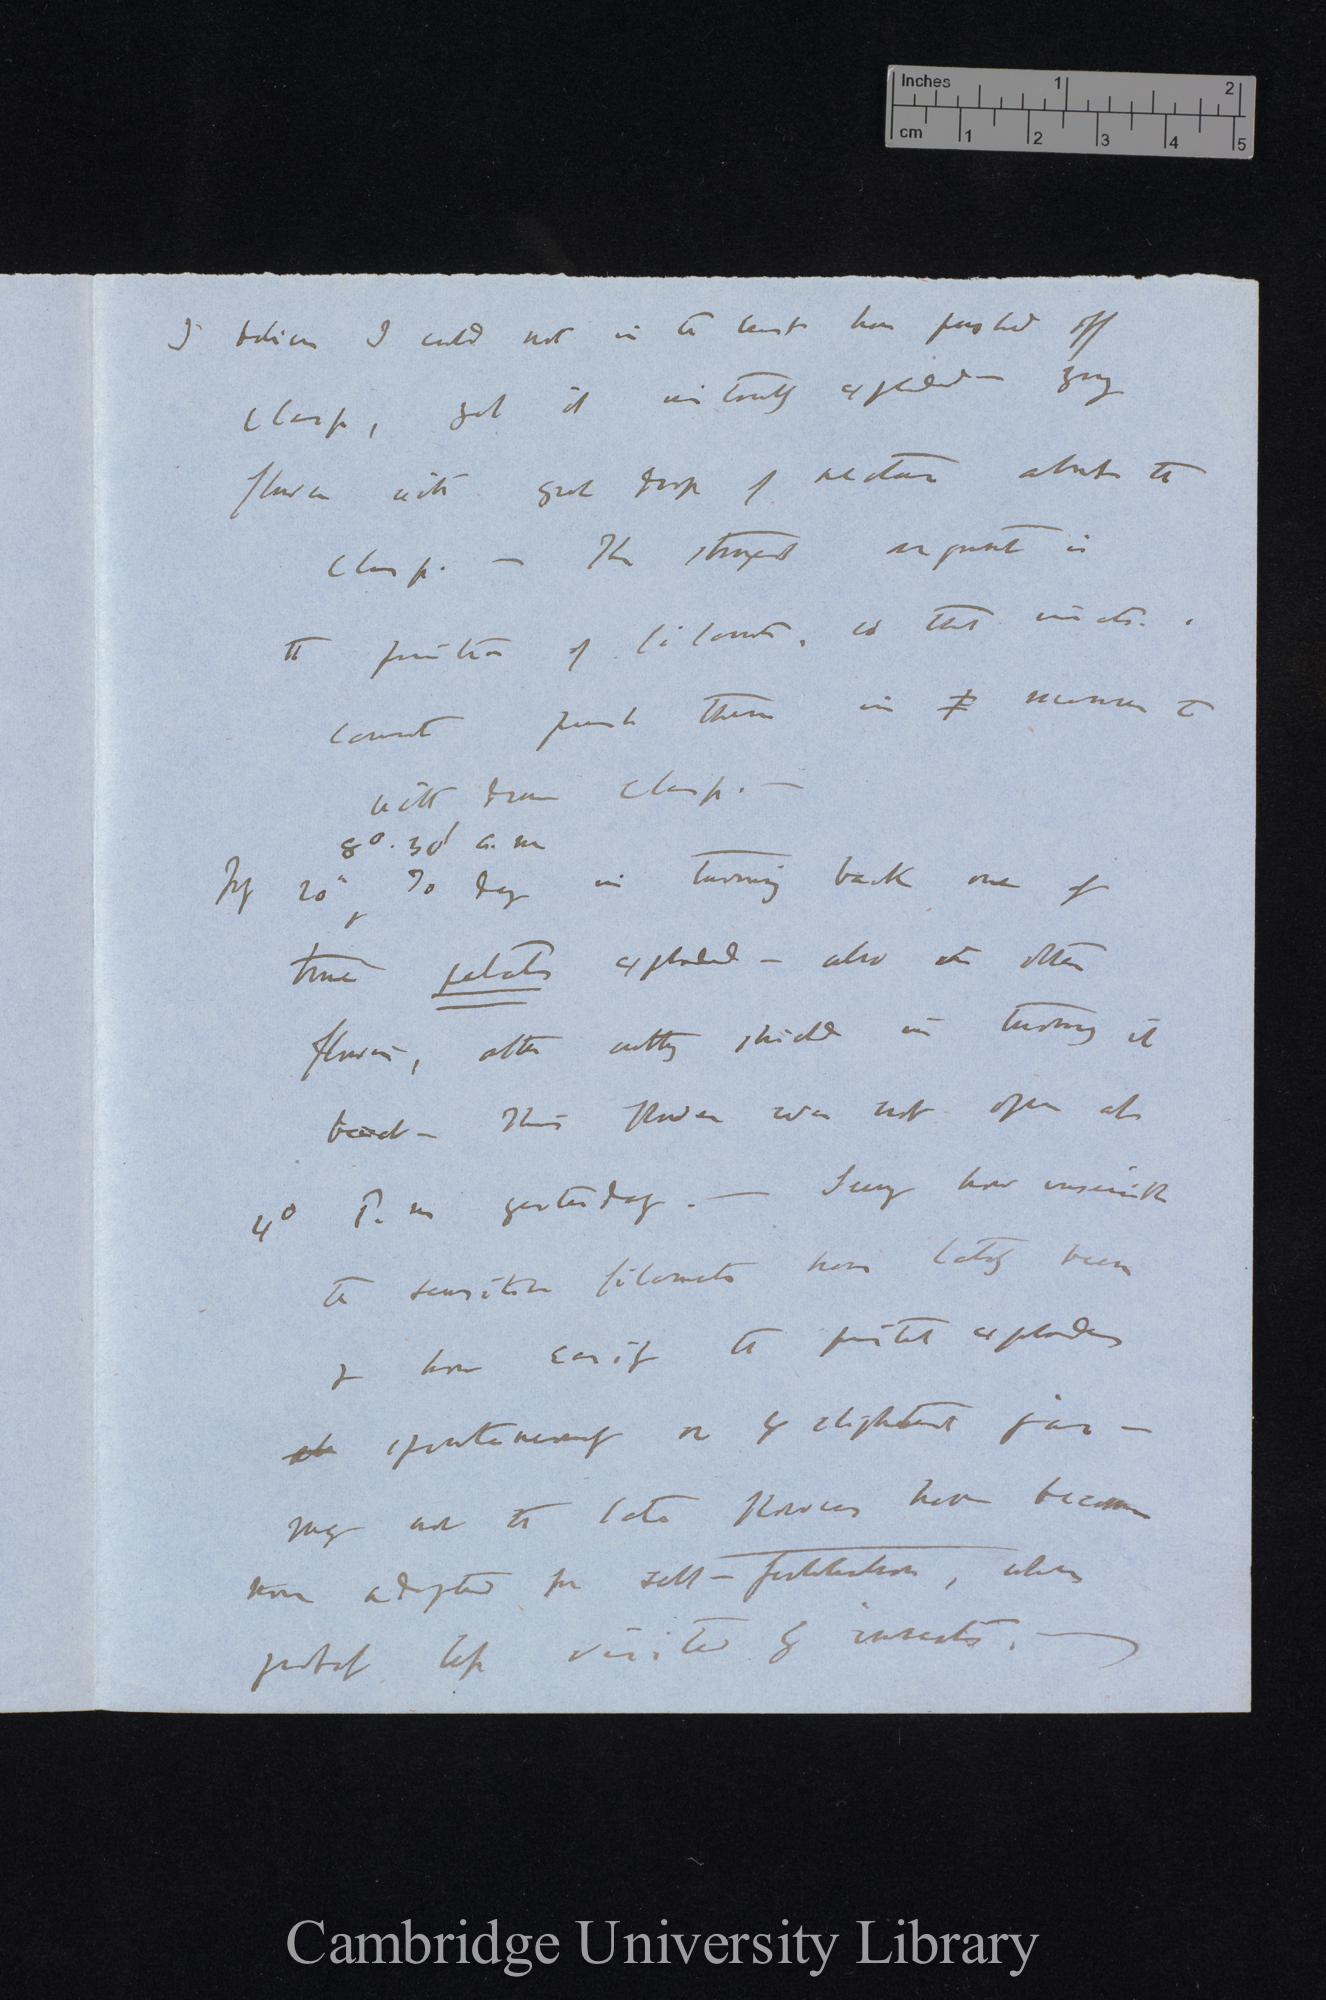 Inches 1 2
cm 1 2 3 4 5
I believe I could not in the least have pushed off
clasp, yet it instantly exploded — young
flower with great drop of nectar about the
clasp. — The strongest argument is
the position of filaments, so that insects
cannot push them in manner to
withdraw clasp. —
8°. 30' a.m
20th To day in turning back one of
true petals exploded — also the other
flower, after cutting shield in turning it
back — This flower was not open at
4° P.m yesterday. — Seeing how insensible
the sensitive filaments have lately been
& how easily the pistil explodes
spontaneously or by slightest jar —
may not the late flowers have become
more adapted for self-fertilisation, when
probably less visited by insects. —
Cambridge University Library